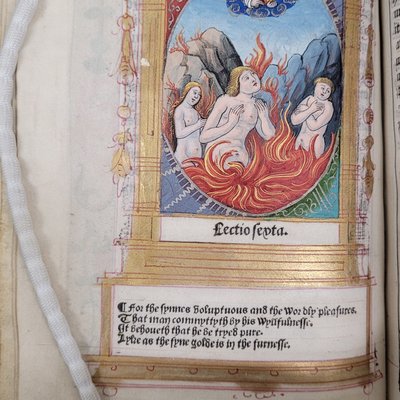 Lectio septa.
¶ For the synnes voluptuous and the Wordly pleasures.
That man commyttyth by his Wylfulnesse.
It behoueth that he be tryed pure.
Lyke as the fyne golde is in the furnesse.